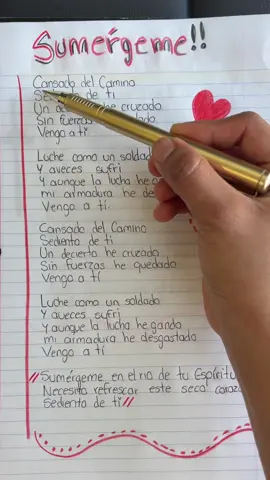 Sumérgeme!!
Cansado del Camino
de ti
Un de he cruzado
Sin fuerzas dado
Vengo a ti
Luche como un soldad
Y aveces sufri
Y aunque la lucha he ga
mi armadura he de
Vengo a tí
Cansado del Camino
Sediento de ti
Un decierto he cruzado
Sin fuerzas he quedado
Vengo a tí
Luche como un soldado
Y aveces sufri
Y aunque la lucha he gando
mi armadura he desgastado
Vengo a tí
//Sumérgeme en el rio de tu Espíritu
Necesito refrescar este seco corazo
Sediento de ti//